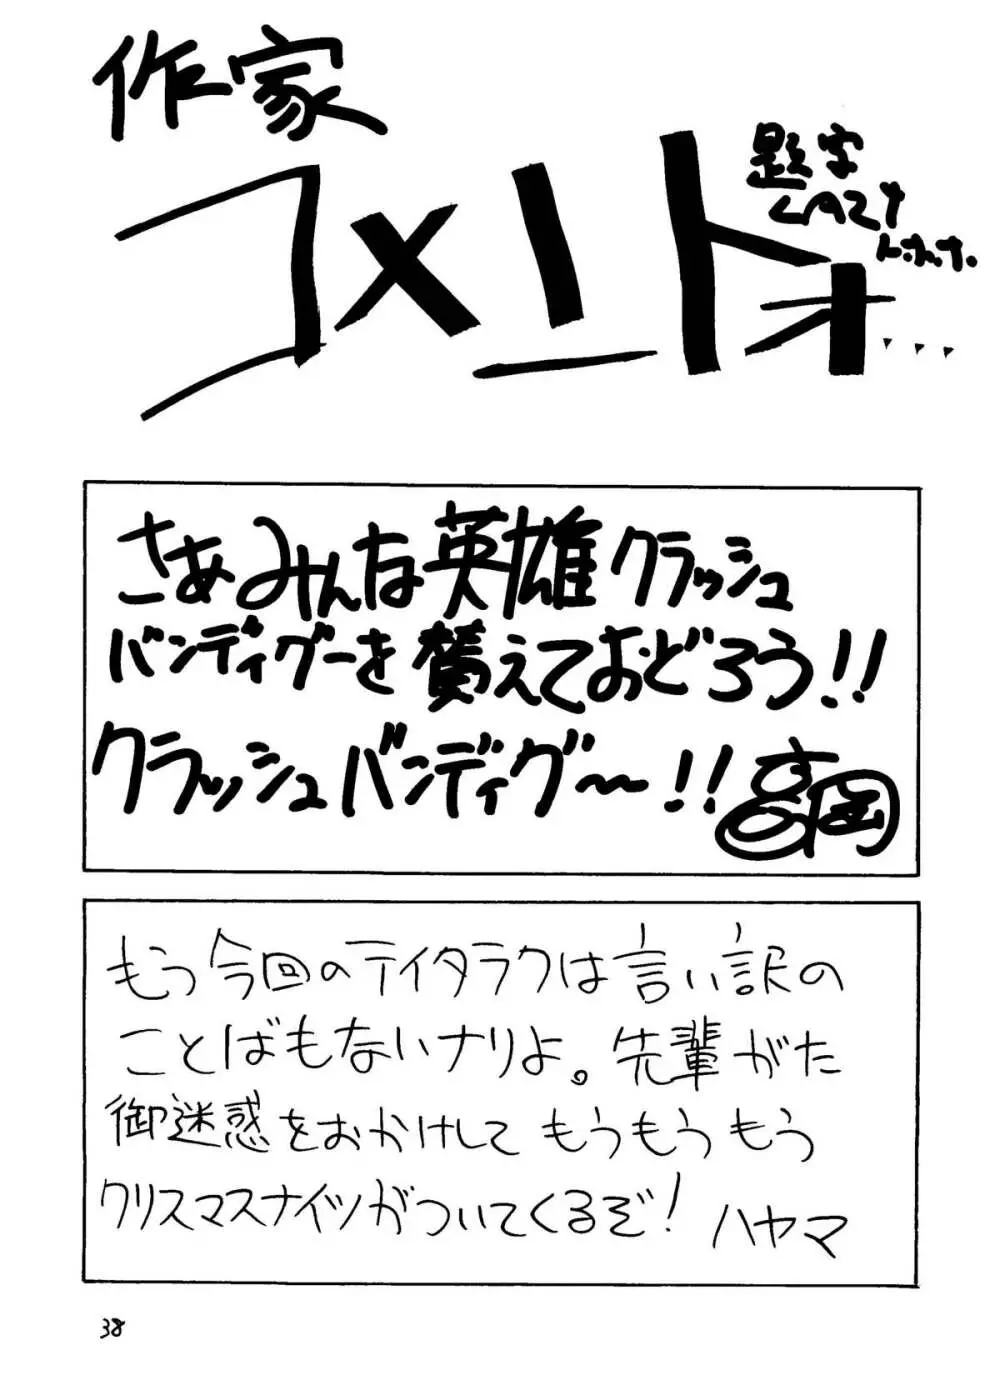 作家
コメントォ...
題字
LAZY
トホホ.
さあみんな英雄クラッシュ
バンディグーを賛えておどろう!!
クラッシュバンディグ〜!! 高岡
もう今回のテイタラクは言い訳の
ことばもないナリよ。先輩がた
御迷惑をおかけして もうもうもう
クリスマスナイツがついてくるぞ! ハヤマ
38